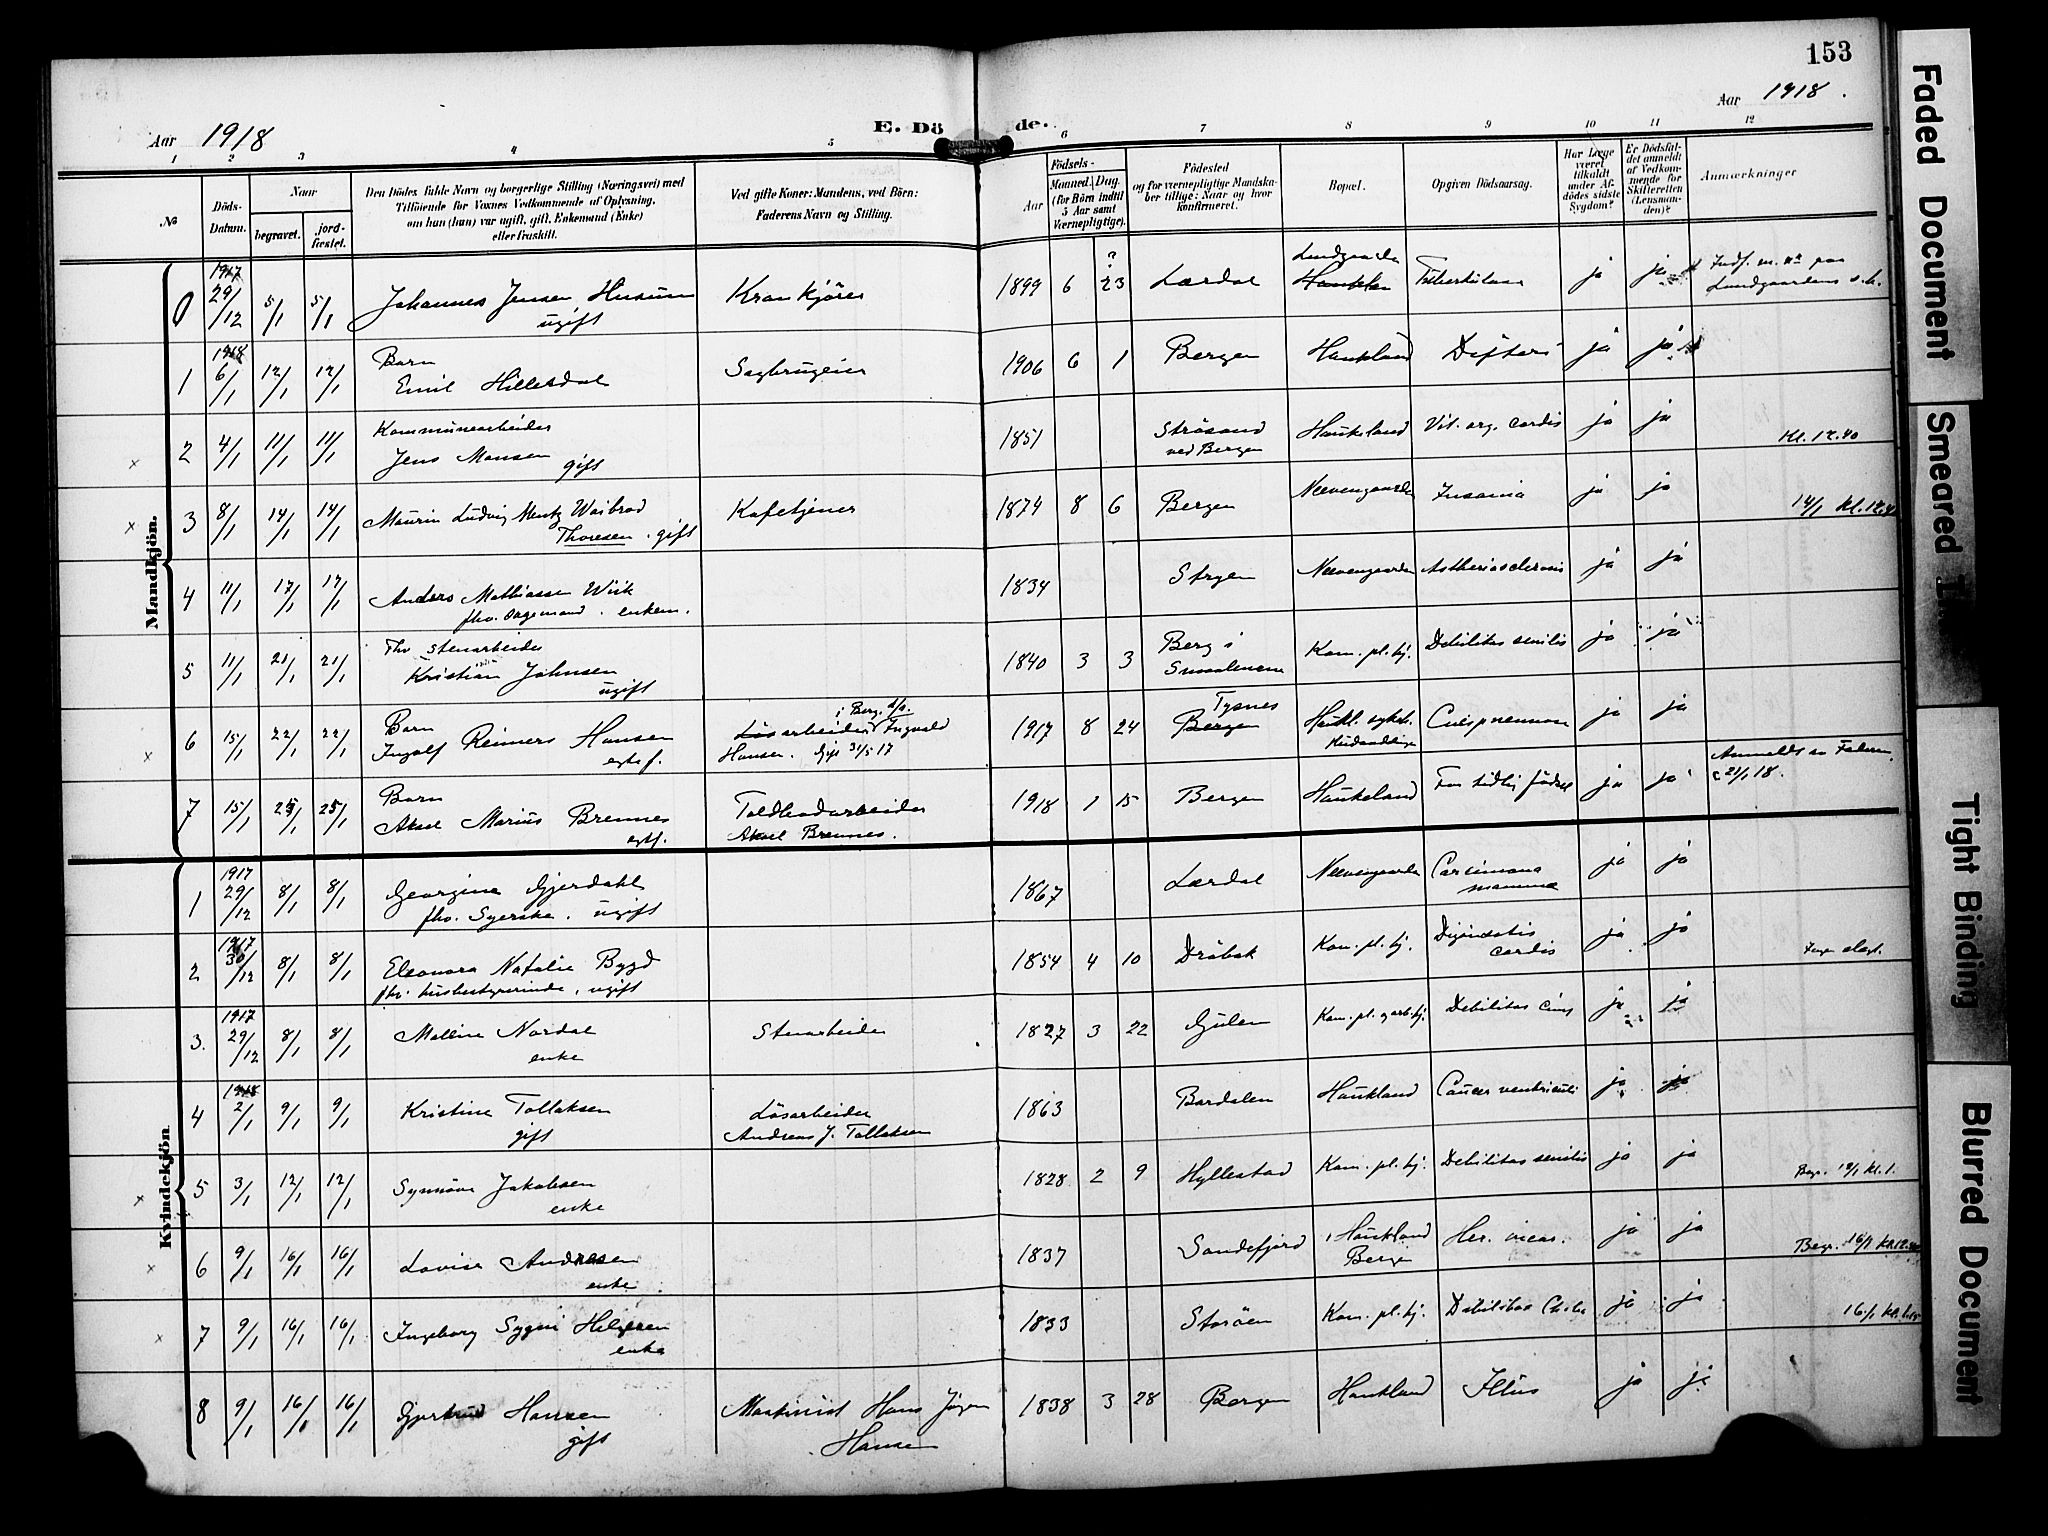 153
Aar 1918
E. Döde.
Aar 1918.
1 2 3 4 5 6 7 8 9 10 11 12
№
Döds-Datum.
Naar
begravet.
jordfæstet.
Den Dödes fulde Navn og borgerlige Stilling (Næringsvei) med
Tilföiende for Voxnes Vedkommende af Oplysning,
om han (hun) var ugift, gift, Enkemand (Enke)
eller fraskilt.
Ved gifte Koner: Mandens, ved Börn:
Faderens Navn og Stilling.
Födsels-
Aar
Maaned. Dag.
(for Börn indtil
5 Aar samt
Værnepligtige).
Födested
og for værnepligtige Mandskaber tillige: Naar og hvor
konfirmeret.
Bopæl.
Opgiven Dödsaarsag.
Har Læge
været
tilkaldt
under Afdödes sidste
Sygdom?
Er Dödsfaldet anmeldt
af Vedkommende for
Skifteretten
(Lensmanden)?
Anmærkninger
Mandkjön.
0 1917 29/12 5/1 5/1 Johannes Jensen Husum ugift Krankjører 1899 6 23 Lærdal Lundgaarden Haukland Tuberkulose ja ja
1 1918 6/1 12/1 12/1 Barn Emil Hillesdal Sagbrugeier 1906 6 1 Bergen Haukland Difteri ja ja
2 4/1 11/1 11/1 Kommunearbeider Jens Monsen gift 1851 Strøsand ved Bergen Haukeland Vit. org. cordis ja ja Kl. 12.40
3 8/1 14/1 14/1 Ludvig Mentz Thoresen. gift Kafetjener 1874 8 6 Bergen Neevengaarden Insania ja ja 14/1 Kl. 12.40
4 11/1 17/1 17/1 Anders Mathiassen Wiik fhv. enkem. 1834 Stryen Neevengaarden ja ja
5 11/1 21/1 21/1 Fhv stenarbeider Kristian Johnsen ugift 1840 3 3 Berg i Smaalenene Kom. pl. hj. Debilitas senilis ja ja
6 15/1 22/1 22/1 Barn Ingolf Reiners Hansen egtef. Løsarbeider i Berg. Ingvald Hansen. Gift 31/5 17 1917 8 24 Tysnes Bergen Haukl. sykeh. ja ja
7 15/1 25/1 25/1 Barn Aksel Marius Brennes egtf. Toldbodarbeider Aksel Brennes. 1918 1 15 Bergen Haukeland For tidlig fødsel ja ja Anmeldt av Faderen 21/1 18.
Kvindekjön.
1 1917 29/12 8/1 8/1 Georgine Gjerdahl fhv. Syerske. ugift 1867 Lærdal Neevengaarden Carcinoma mamma ja ja
2 1917 30/12 8/1 8/1 Eleonora Natalie Bygd fhv. husbestyrerinde, ugift 1854 4 10 Drøbak Kom. pl. hj. cordis ja ja
3. 1917 29/12 8/1 8/1 Malline Nordal enke Stenarbeider 1827 3 22 Gulen Kom. pl. og arb. hj. Debilitas ja ja
4 1918 2/1 9/1 9/1 Kristine Tollaksen gift Løsarbeider Andreas J. Tollaksen 1863 Bardalen Haukland Cancer ventriculi ja ja
5 3/1 12/1 12/1 Synnøve Jakobsen enke 1828 2 9 Hyllestad Kom. pl. hj. Debilitas senilis ja ja Begr. 12/1 kl. 1.
6 9/1 16/1 16/1 Lovise Andresen enke 1837 Sandefjord Haukland Bergen ja ja Begr. 16/1 kl. 12.40
7 9/1 16/1 16/1 Ingeborg Sygni Helgesen enke 1833 Storøen Kom. pl. hj. Debilitas ja ja 16/1 kl.
8 9/1 16/1 16/1 Gjertrud Hansen gift Maskinist Hans Jørgen Hansen 1838 3 28 Bergen Haukland Ileus ja ja
Faded Document
Smeared
Tight Binding
Blurred Document